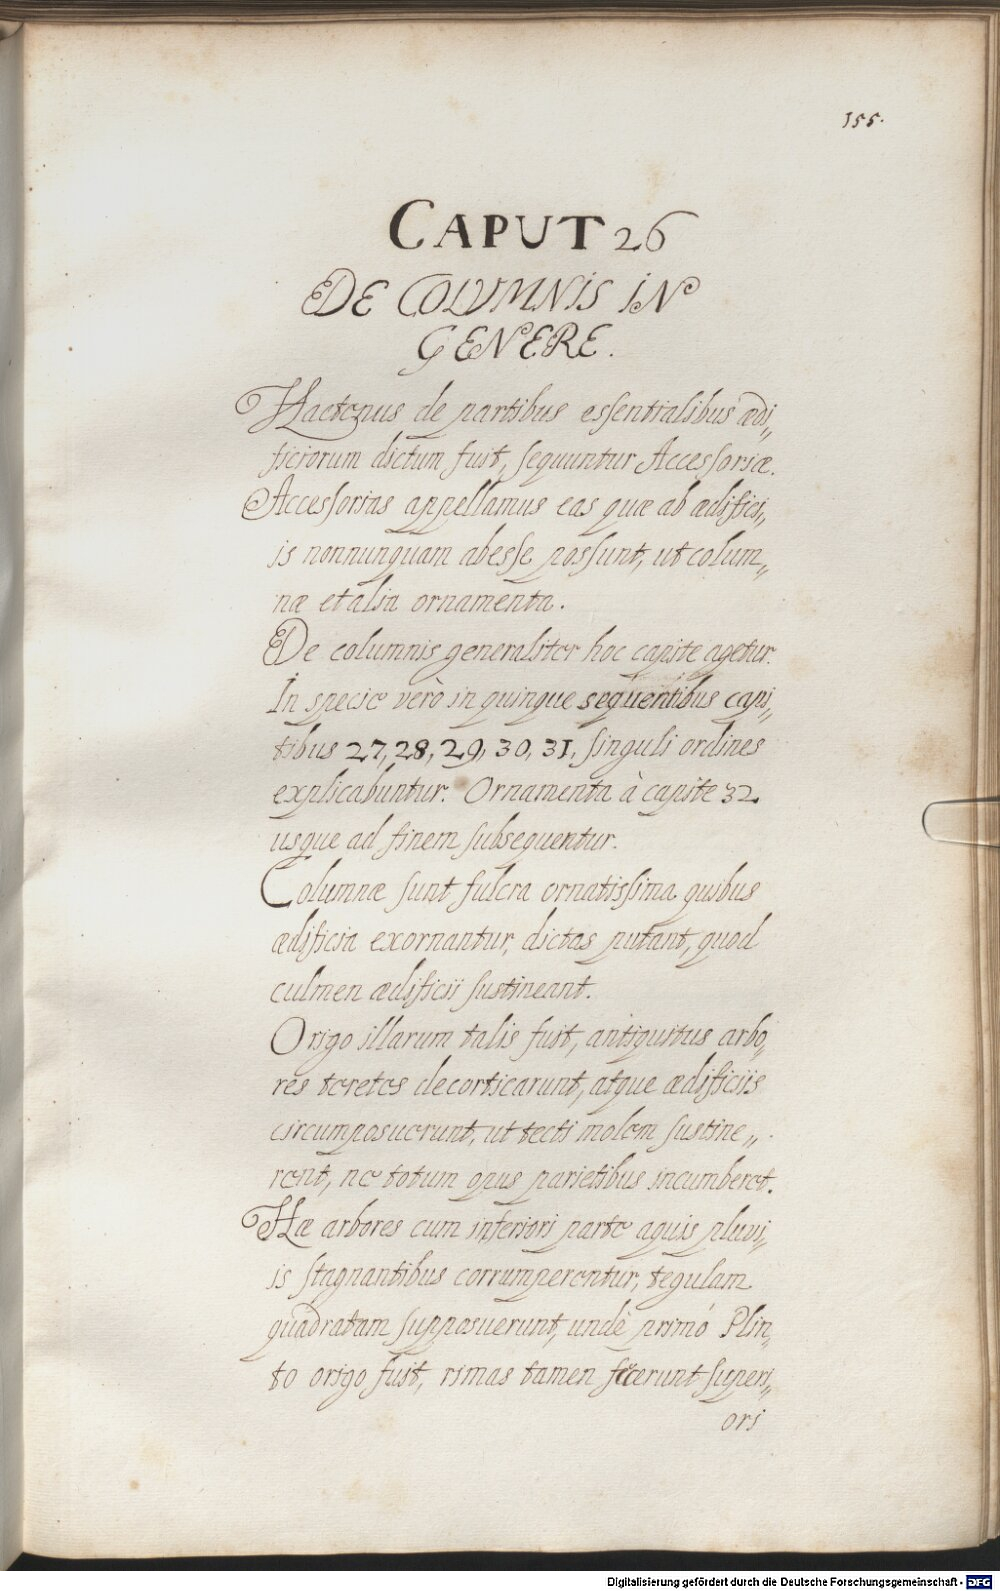 155.
CAPUT 26
DE COLUMNIS IN
GENERE.
Hactenus de partibus essentialibus ædi„
ficiorum dictum fuit, sequuntur Accessoriæ.
Accessorias appellamus eas quæ ab ædifici„
is nonnunquam abesse possunt, ut colum„
næ et alia ornamenta.
De columnis generaliter hoc capite agetur.
In specie verò in quinque sequentibus capi„
tibus 27, 28, 29, 30, 31, singuli ordines
explicabuntur. Ornamenta à capite 32
usque ad finem subsequentur.
Columnæ sunt fulcra ornatissima quibus
ædificia exornantur, dictas putant, quod
culmen ædificii sustineant.
Origo illarum talis fuit, antiquitus arbo„
res teretes decorticarunt, atque ædificiis
circumposuerunt, ut tecti molem sustine„
rent, ne totum opus parietibus incumberet.
Hæ arbores cum inferiori parte aquis pluvi„
is stagnantibus corrumperentur, tegulam
quadratam supposuerunt, undè primó Plin„
to origo fuit, rimas tamen fecerunt superi„
ori
Digitalisierung gefördert durch die Deutsche Forschungsgemeinschaft - DFG